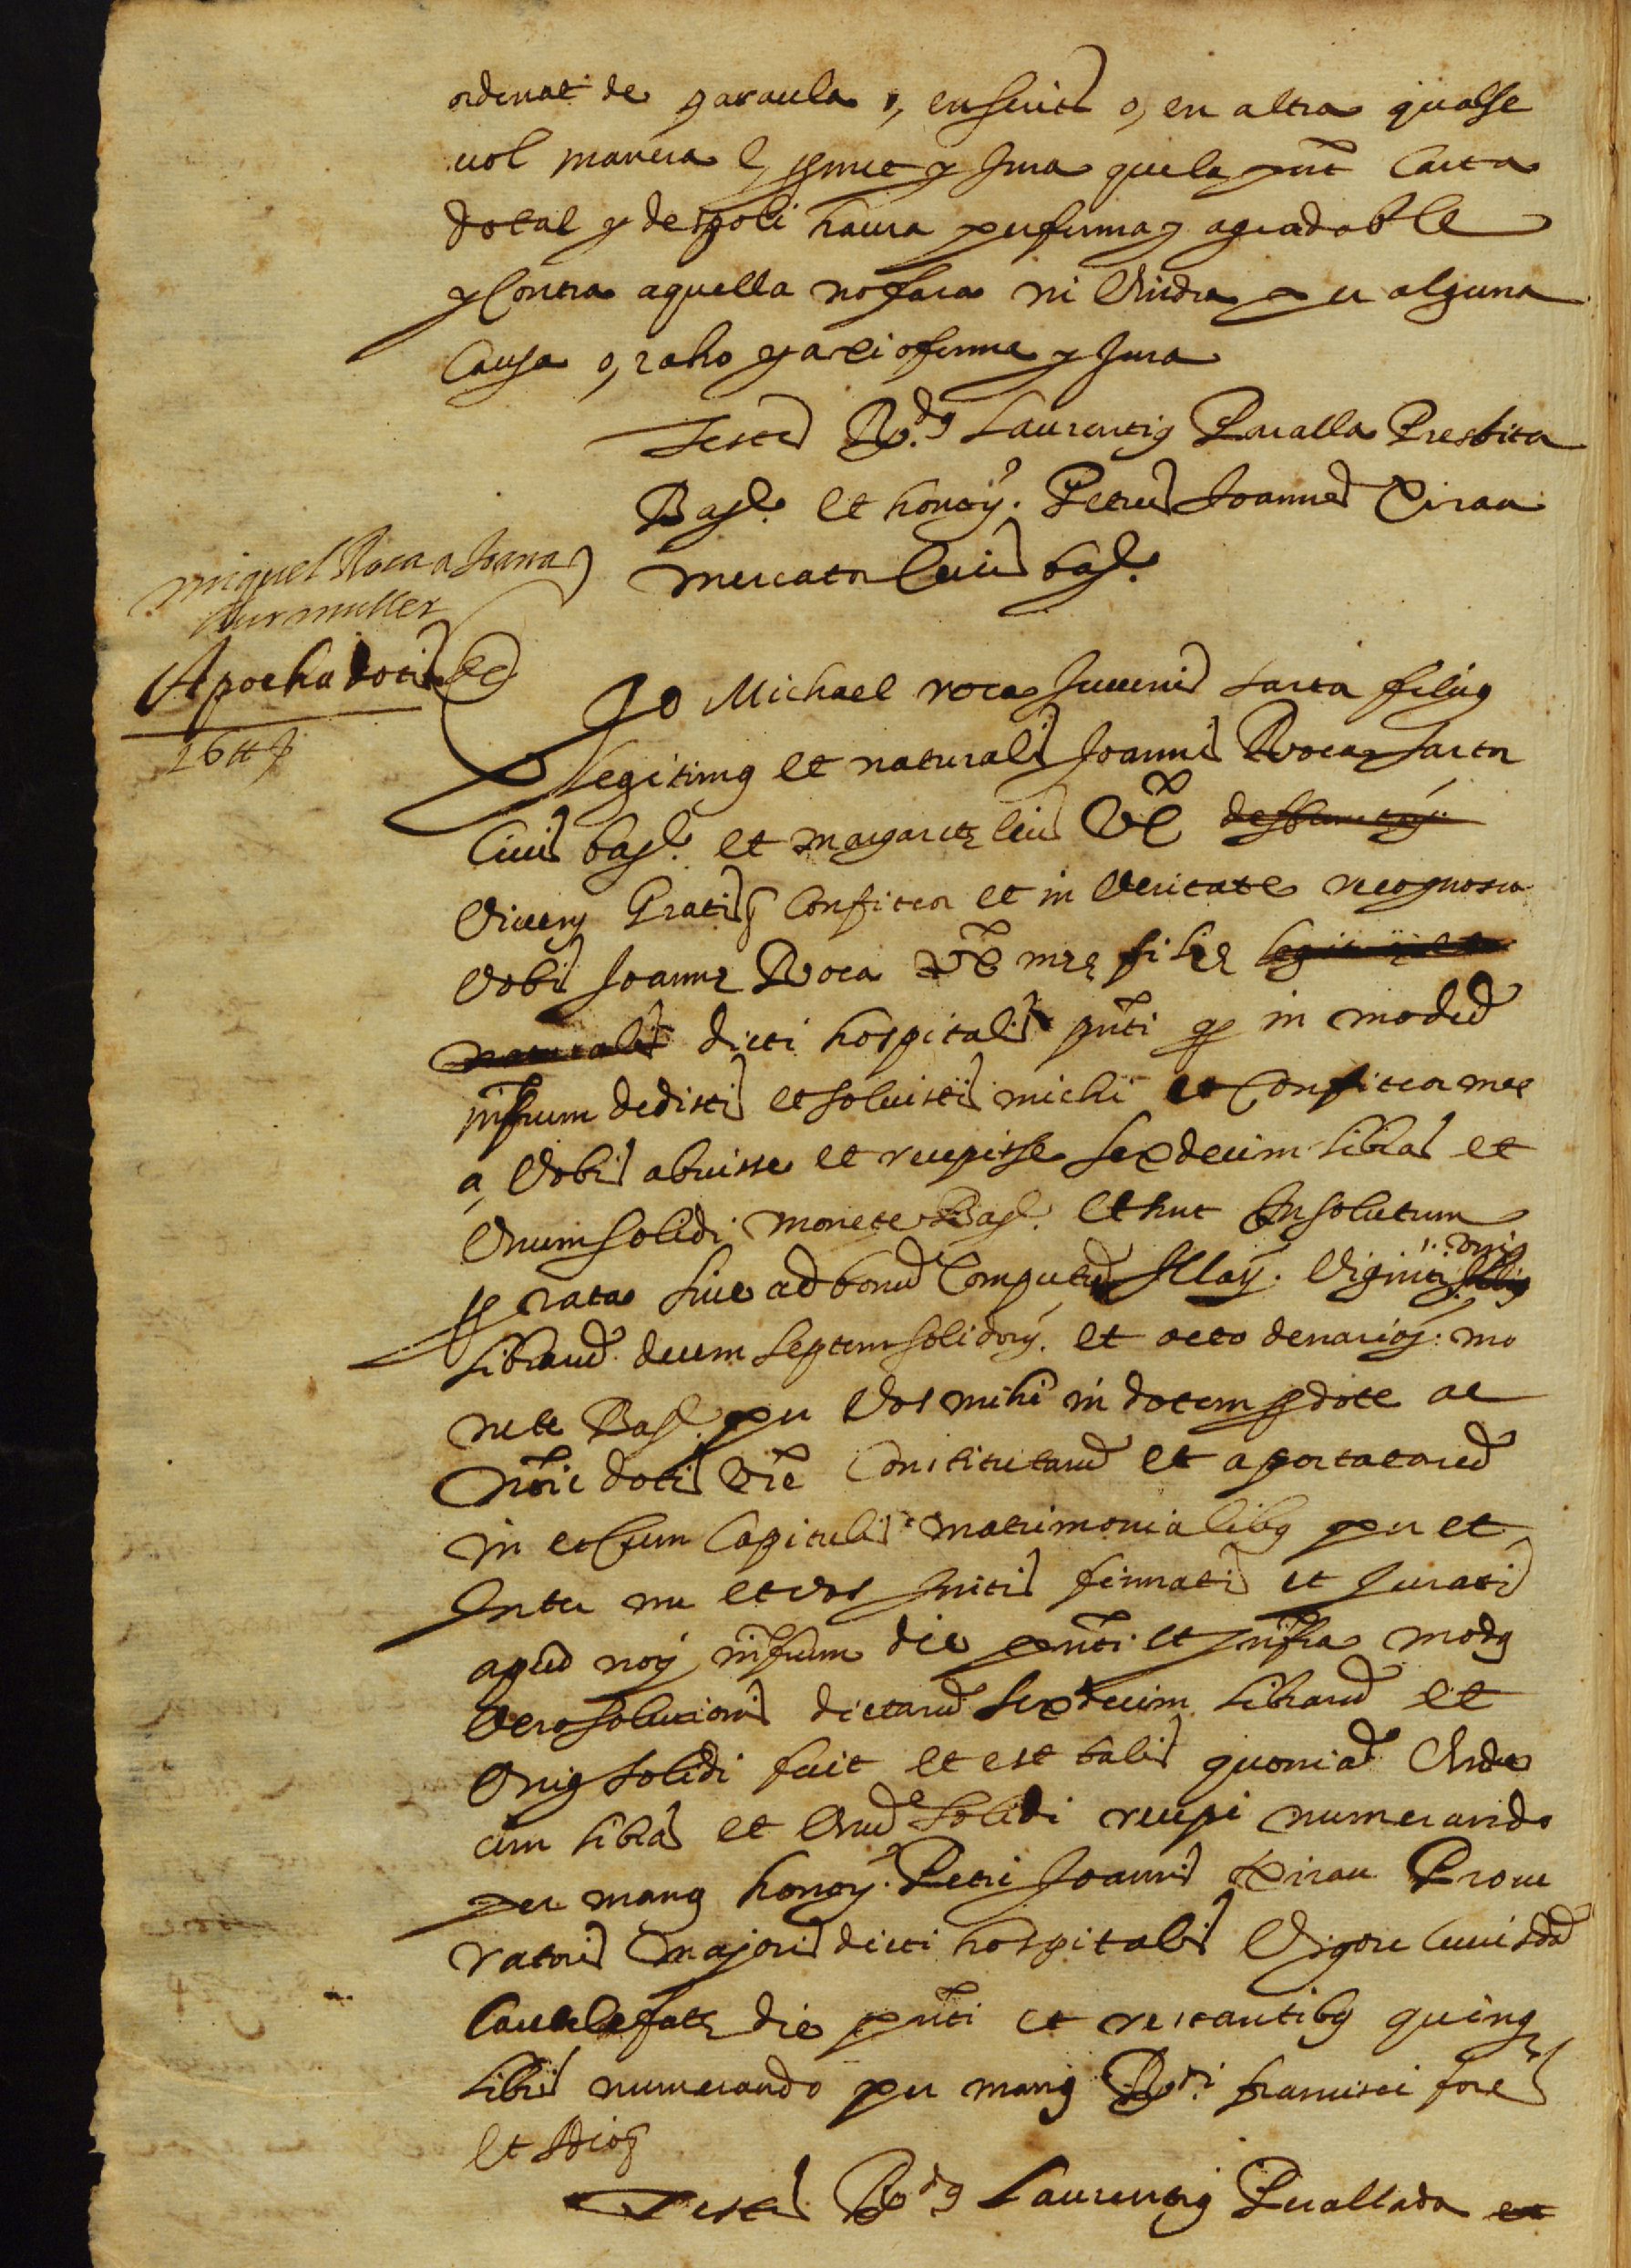 ordenat de paraula o, en scrits o, en altra qualse
vol manera E, promet y Jura que la pnt Carta
dotal y de spoli haura per ferma y agradable
y Contra aquella no fara ni Vindra per alguna
Causa o, raho y axi o ferma y Jura
Testes Rdus Laurentius Paralla Presbiter
Bagl. et honory. Petrus Joannes Xirau
mercator Civis bagl.
Miquel Roca a Joana
Apocha dotis
16 tt j
Jo Michael roca Juvenis sartor filius
legitimus et naturalis Joannis Roca sartor
Civis bagl. et margarite eius
viveny Gratis Confiteor et in Veritate recognosco
Vobis Joanne Roca mee filie
dicti hospitalis pnti in modum
infrum dedistis et solvistis michi et Confiteor me
a, Vobis abuisse et recepisse sexdecim libras et
Unum solidi monete Bagl. et hut Insolutum
pro rata sive ad bonum Computum Illary. Viginti
librarum decem septem solidory. et octo denarioy. mo
nete Bagl. per Vos mihi in dotem pro dote ac
noie dotis vre Constitutarum et aportatarum
in et Cum Capitulis matrimonialibus per et
Inter me et vos Initis firmatis et Juratis
apud noy infrum die pnti et infra modus
Vero solutionis dictarum sexdecim librarum et
Unius solidi fuit et est talis quoniam Unde
cim libras et Unum solidi recepi numerando
per manus honory. Petri Joannis Xirau Procu
ratoris majoris dicti hospitalis Vigore cuiusdam
Cautele facte die pnti et restantibus quinq
libris numerando per manus Rdi. francisci fores
Et Ideo
Testes Rdus Laurentius Perallada et